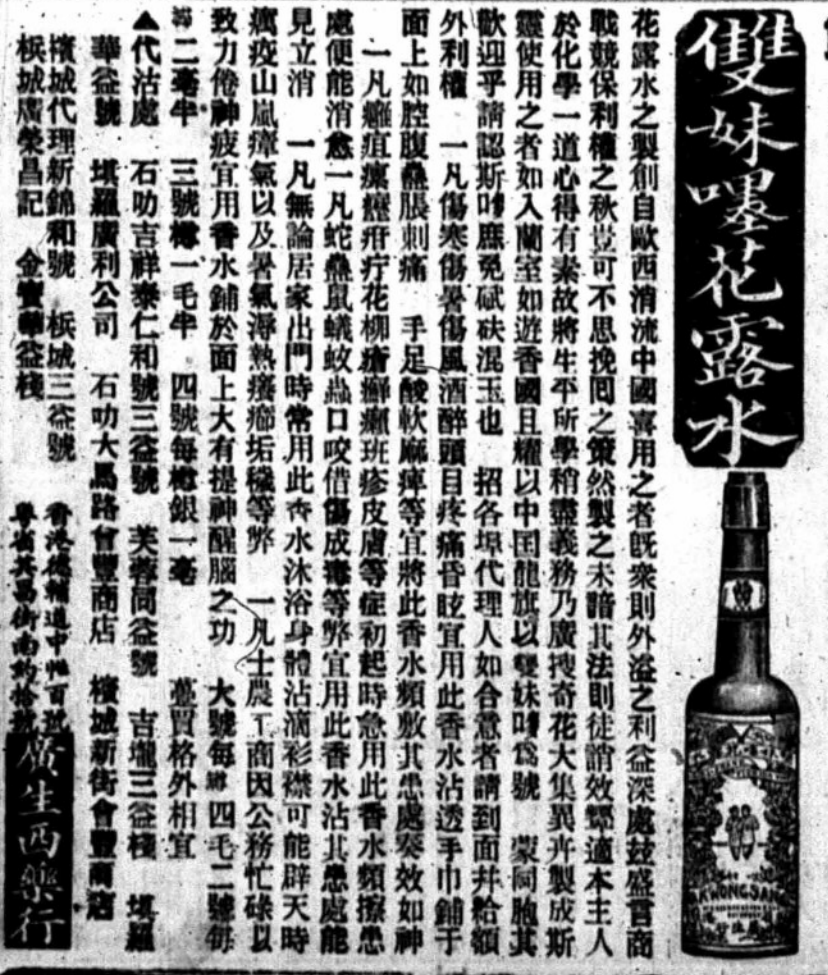 雙妹嘜花露水
花露水之製創自歐西消流中國喜用之者既衆則外溢之利益深處茲盛言商
戰競保利權之秋豈可不思挽囘之策然製之未諳其法則徒誚效顰適本主人
於化學一道心得有素故將生平所學稍盡義務乃廣搜奇花大集異卉製成斯
靈使用之者如入蘭室如遊香國且耀以中囯龍旗以雙妹嘜爲號 蒙同胞其
歡迎乎請認斯嘜庶免碔砆混玉也 招各埠代理人如合意者請到面幷給額
外利權 一凡傷寒傷暑傷風酒醉頭目疼痛昏眩宜用此香水沾透手巾鋪于
面上如腔腹蠱脹刺痛 手足酸軟麻痺等宜將此香水頻敷其患處奏效如神
一凡癰疽瘰癧疳疔花柳瘡癬癩班疹皮膚等症初起時急用此香水頻擦患
處便能消愈一凡蛇蠱鼠蟻蚊蟲口咬借傷成毒等弊宜用此香水沾其患處能
見立消 一凡無論居家出門時常用此香水沐浴身體沾滴彩襟可能辟天時
癘疫山嵐瘴氣以及暑氣溽熱癢癤垢穢等弊 一凡士農工商因公務忙碌以
致力倦神疲宜用香水鋪於面上大有提神醒腦之功 大號每罇四毛二號每
罇二毫半 三號樽一毛半 四號每樽銀一毫 躉買格外相宜
▲代沽處 石叻吉祥泰仁和號三益號 芙蓉同益號 吉壠三益棧 埧羅
華益號 埧羅廣利公司 石叻大馬路會豐商店 檳城新街會豐商店
檳城代理新錦和號 梹城三益號
梹城廣榮昌記 金寶華益棧
香港德輔道中 百 號
粵省其昌街南約拾號
廣生西藥行
KWONG SANG